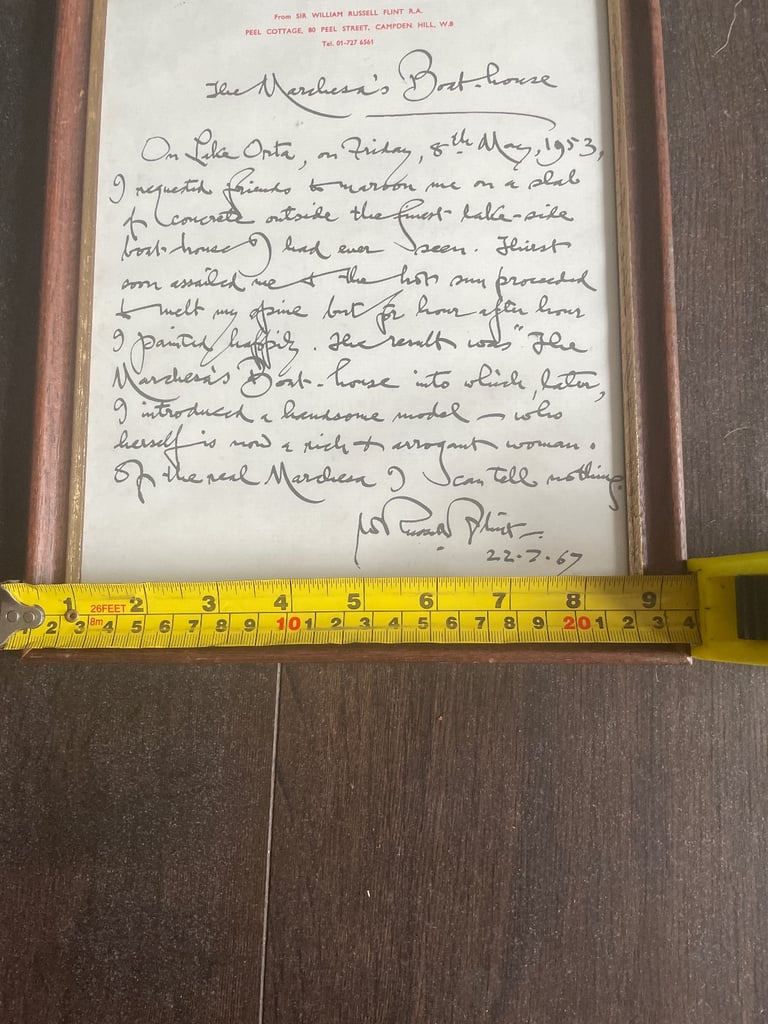 From SIR WILLIAM RUSSELL FLINT R.A.
PEEL COTTAGE, 80 PEEL STREET, CAMPDEN HILL, W.8
Tel. 01-727 6561
The Marchesa's Boat-house
On Lake Orta, on Friday, 8th May, 1953,
I requested friends to maroon me on a slab
of concrete outside the finest lake-side
boat-house I had ever seen. Thirst
soon assailed me & the hot sun proceeded
to melt my spine but for hour after hour
I painted happily. The result was "The
Marchesa's Boat-house into which, later,
I introduced a handsome model — who
herself is now a rich & arrogant woman.
Of the real Marchesa I can tell nothing.
W Russell Flint
22.7.67
1 26FEET 2 3 4 5 6 7 8 9
1 2 3 8m 4 5 6 7 8 9 10 1 2 3 4 5 6 7 8 9 20 1 2 3 4